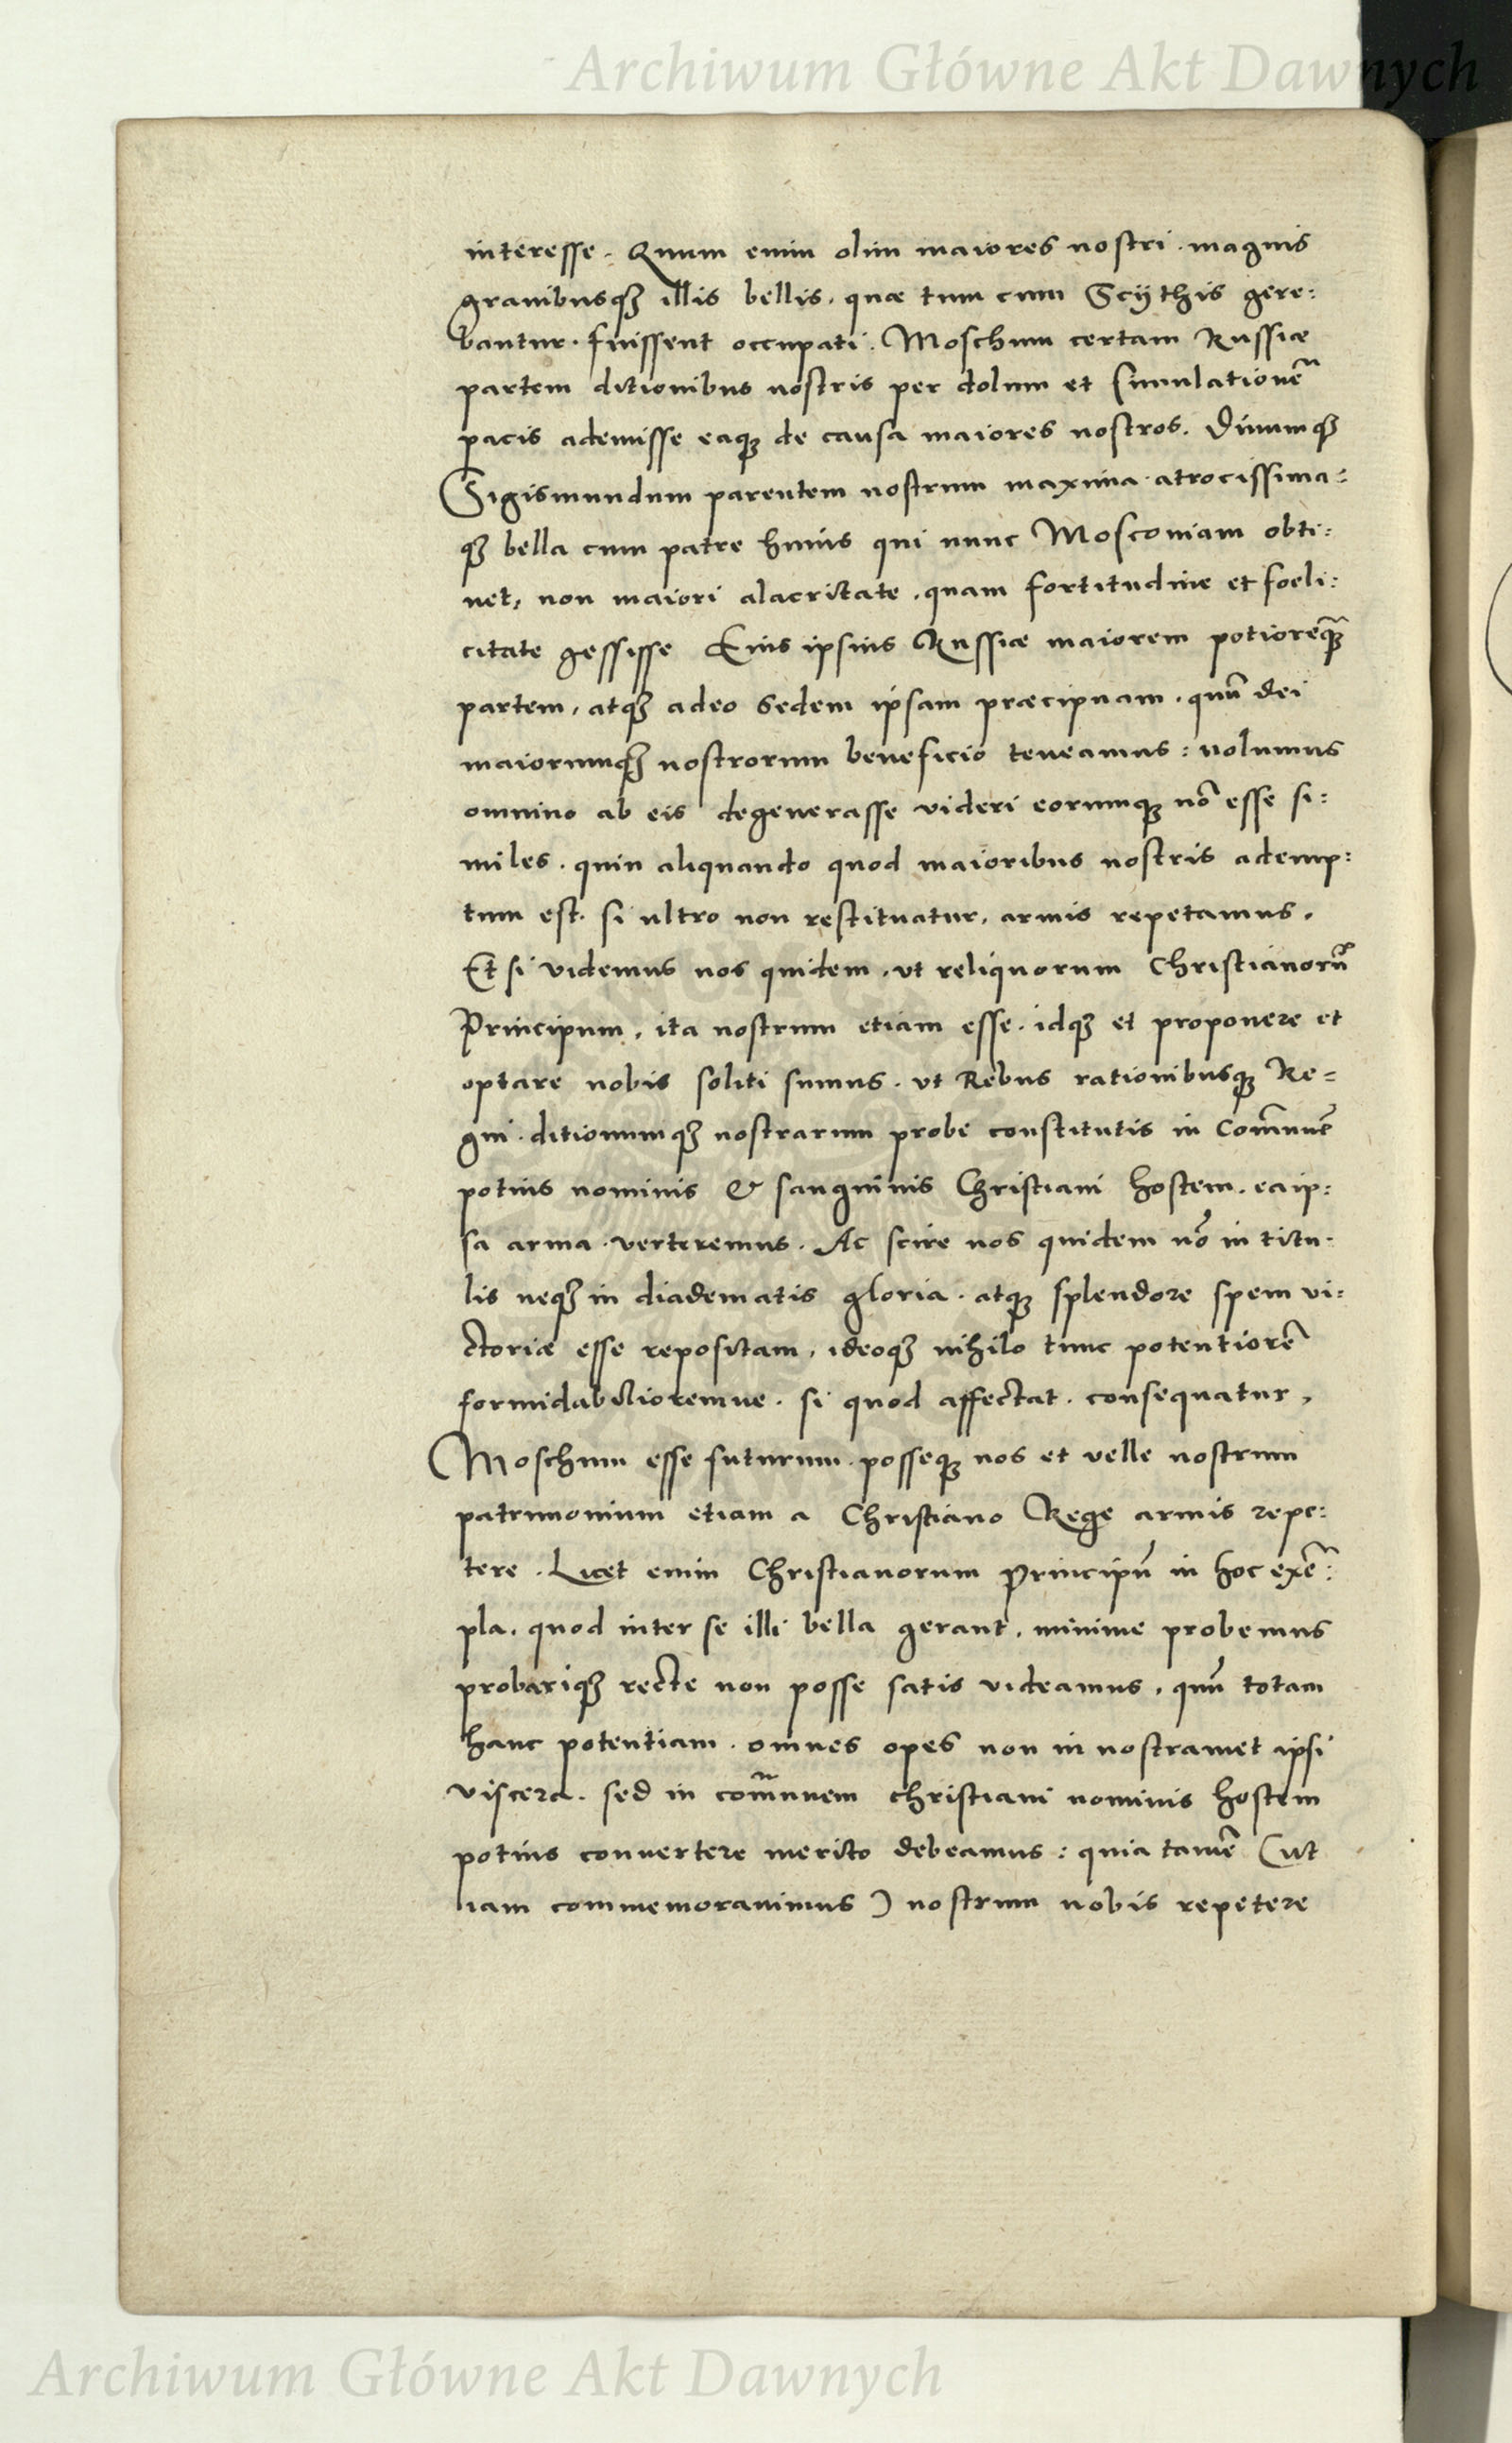 Archiwum Główne Akt Dawnych
interesse. Quum enim olim maiores nostri. magnis
grauibusq&#x0301; illis bellis. quæ tum cum Scÿthis gere:
bantur. fuissent occupati. Moschum certam Russiæ
partem ditionibus nostris per dolum et simulationē
pacis ademisse eaqꝫ de causa maiores nostros. Diuumqꝫ
Sigismundum parentem nostrum maxima atrocissima:
qꝫ bella cum patre huius qui nunc Moscouiam obti:
net, non maiori alacritate. quam fortitudine et foeli:
citate gessisse Eius ipsius Russiæ maiorem potiorēqꝫ
partem, atqꝫ adeo Sedem ipsam præcipuam. quū dei
maiorumqꝫ nostrorum beneficio teneamus: nolumus
omnino ab eis degenerasse videri eorumqꝫ nō esse si:
miles. quin aliquando quod maioribus nostris ademp:
tum est. si ultro non restituatur, armis repetamus.
Et si videmus nos quidem. vt reliquorum Christianorū
Principum, ita nostrum etiam esse. idqꝫ et proponere et
optare nobis soliti sumus. vt Rebus rationibusqꝫ Re=
gni. ditionumqꝫ nostrarum probe constitutis in Com̄unē
potius nominis & sanguinis Christiani hostem. ea ip:
sa arma verteremus. Ac scire nos quidem nō in titu:
lis neqꝫ in diadematis gloria. atqꝫ splendore spem vi:
ctoriæ esse repositam, ideoqꝫ nihilo tunc potentiorē
formidabilioremue. si quod affectat. consequatur,
Moschum esse futurum. posseqꝫ nos et velle nostrum
patrimonium etiam a Christiano Rege armis repe:
tere. Licet enim Christianorum Principū in hoc exē:
pla. quod inter se illi bella gerant. minime probemus
probariqꝫ recte non posse satis videamus. quū totam
hanc potentiam. omnes opes non in nostramet ipsi
viscera. sed in com̄unem christiani nominis hostem
potius conuertere merito debeamus: quia tamē (ut
iam commemorauimus) nostrum nobis repetere
Archiwum Główne Akt Dawnych